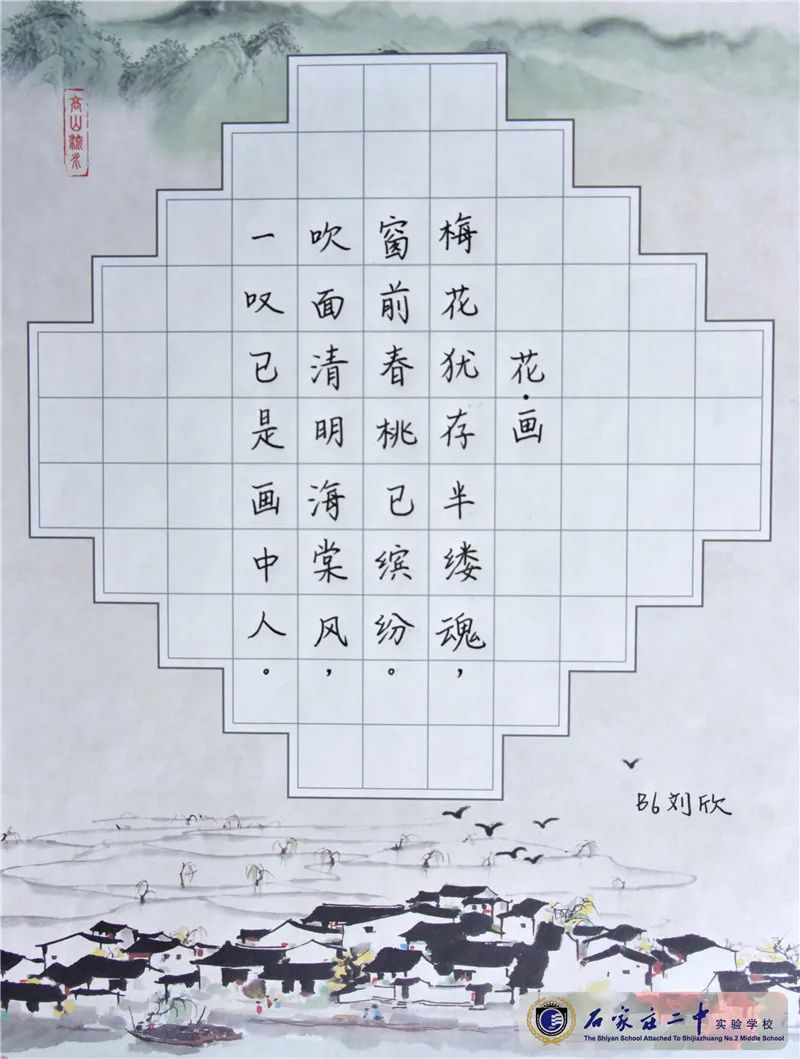 高山流水
花·画
梅花犹存半缕魂，
窗前春桃已缤纷。
吹面清明海棠风，
一叹已是画中人。
B6刘欣
石家庄二中实验学校
The Shiyan School Attached To Shijiazhuang No.2 Middle School